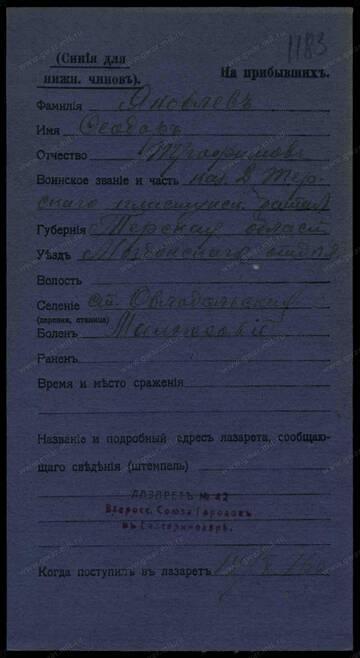 1183
(Синія для
нижн. чиновъ).
На прибывшихъ.
Фамилія Яковлевъ
Имя Ѳеодоръ
Отчество Трофимовъ
Воинское званіе и часть каз. 2 Тер-
скаго пластунск. батал
Губернія Терская област
Уѣздъ Моздокскаго отдѣл
Волость
Селеніе ст.
(деревня, станица)
Боленъ
Раненъ
Время и мѣсто сраженія
Названіе и подробный адресъ лазарета, сообщаю-
щаго свѣдѣнія (штемпель)
ЛАЗАРЕТЪ № 42
Всеросс. Союза Городовъ
въ Екатеринодарѣ.
Когда поступилъ въ лазаретъ